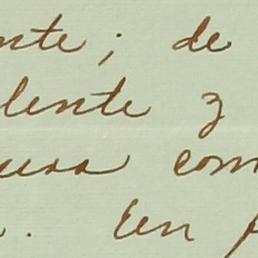 nte; de
lente y
com
. En